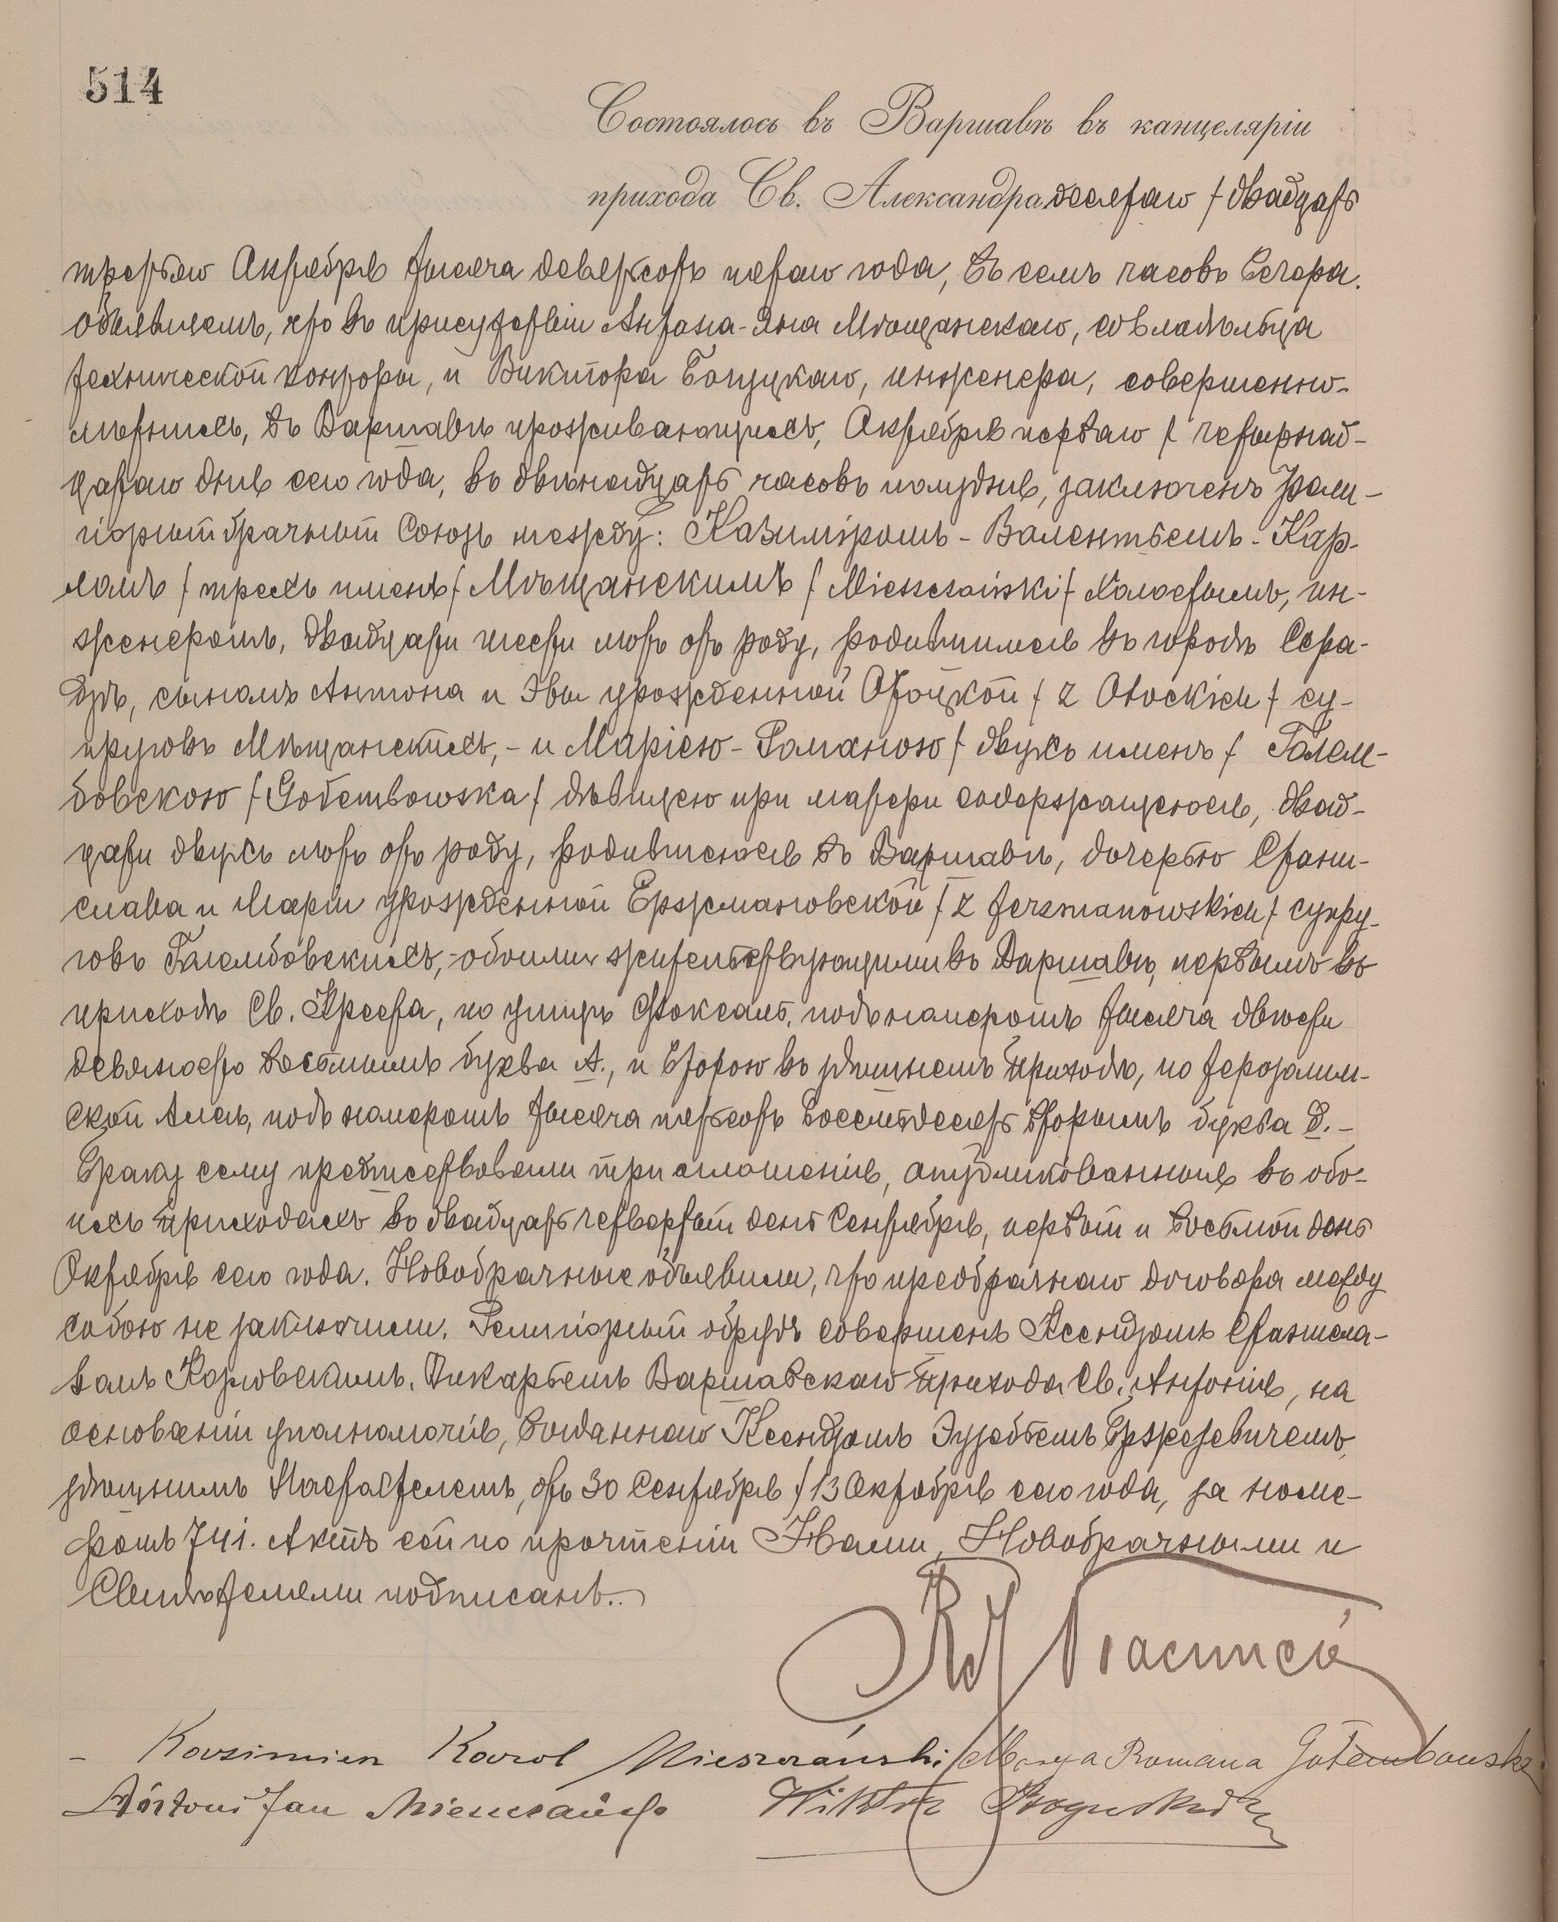 514
Состоялось въ Варшавѣ въ канцеляріи
прихода Св. Александра десятаго / двадцать
третьяго Октября тысяча девятьсотъ пятаго года, въ семь часовъ вечера.
Объявляемъ, что въ присутствіи Антона-Яна Мѣщанскаго, совладѣльца
технической конторы, и Виктора Богуцкаго, инженера, совершенно-
лѣтнихъ, въ Варшавѣ проживающихъ, Октября перваго / четырнад-
цатаго дня сего года, въ двѣнадцать часовъ полудня, заключенъ рели-
гіозный брачный союзъ между: Казиміромъ-Валентьемъ-Кар-
ломъ / трехъ именъ / Мѣщанскимъ / Mieszczański / холостымъ, ин-
женеромъ, двадцати шести лѣтъ отъ роду, родившимся въ городѣ Сера-
дзѣ, сыномъ Антона и Эвы урожденной Отоцкой / z Otockich / су-
пруговъ Мѣщанскихъ, - и Маріею-Романою / двухъ именъ / Голем-
бовскою / Gołembowska / дѣвицею при матери содержащеюся, двад-
цати двухъ лѣтъ отъ роду, родившеюся въ Варшавѣ, дочерью Стани-
слава и Маріи урожденной Ержмановской / z Jerzmanowskich / супру-
говъ Голембовскихъ, - обоими жительствующими въ Варшавѣ, первымъ въ
приходѣ Св. Креста, по улицѣ Фоксаль, подъ номеромъ тысяча двѣсти
девяносто восьмымъ буква А., и второю въ здѣшнемъ приходѣ, по Іерозолим-
ской Алеѣ, подъ номеромъ тысяча пятьсотъ восемьдесятъ вторымъ буква
Браку сему предшествовали три оглашенія, опубликованныя въ обо-
ихъ приходахъ въ двадцать четвертый день Сентября, первый и восьмой день
Октября сего года. Новобрачные объявили, что предбрачнаго договора между
собою не заключили. Религіозный обрядъ совершенъ Ксендзомъ Станисла-
вомъ Викарьемъ Варшавскаго прихода Св. Антонія, на
основаніи уполномочія, выданнаго Ксендзомъ
здѣшнимъ Настоятелемъ, отъ 30 Сентября / 13 Октября сего года, за номе-
ромъ 741. Актъ сей по прочтеніи Нами, Новобрачными и
Свидѣтелями подписанъ.
Kazimierz Karol Mieszczański Marya Romana Gołembowska
Antoni Jan Mieszczański Wiktor Bogucki